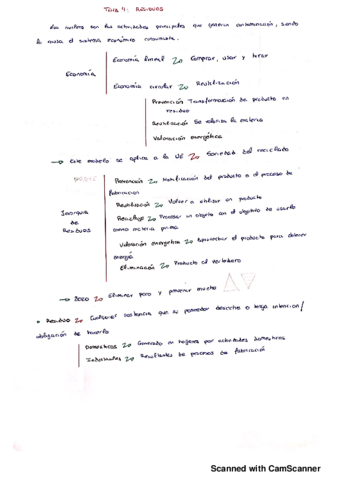 Tema 4: RESIDUOS
Los núcleos son las actividades principales que generan contaminación, siendo
la causa el sistema económico consumista.
Economía lineal Comprar, usar y tirar
Economía
Economía circular Reutilización
Prevención Transformación de producto en
residuo
Reutilización Se reutiliza la materia
Valoración energética
→ Este modelo se aplica a la UE Sociedad del reciclado
Prevención Modificación del producto o el proceso de
fabricación
Reutilización Volver a utilizar un producto
Jerarquía
de
Residuos
Reciclaje Procesar un objeto con el objetivo de usarlo
como materia prima
Valoración energética Aprovechar el producto para obtener
energía
Eliminación Producto al vertedero
→ Eliminar poco y prevenir mucho
• Residuo Cualquier sustancia que su poseedor deseche o tenga intención/
obligación de hacerlo
Domésticos Generado en hogares por actividades domésticas
Industriales Resultantes de procesos de fabricación
Scanned with CamScanner